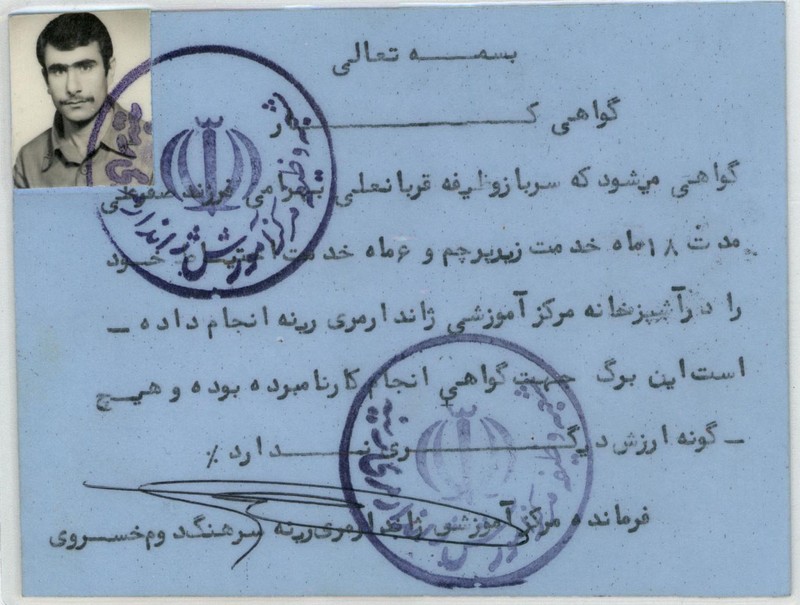 بسمه تعالی
گواهی کار
گواهی میشود که سرباز وظیفه قربانعلی بهرامی فرزند صفرعلی
مدت ۱۸ ماه خدمت زیرپرچم و ۶ ماه خدمت احتیاط خود
را در آشپزخانه مرکز آموزشی ژاندارمری رینه انجام داده _
است این برگ جهت گواهی انجام کار نامبرده بوده و هیچ
_ گونه ارزش دیگری ندارد ٪
فرمانده مرکز آموزشی ژاندارمری رینه سرهنگ دوم خسروی